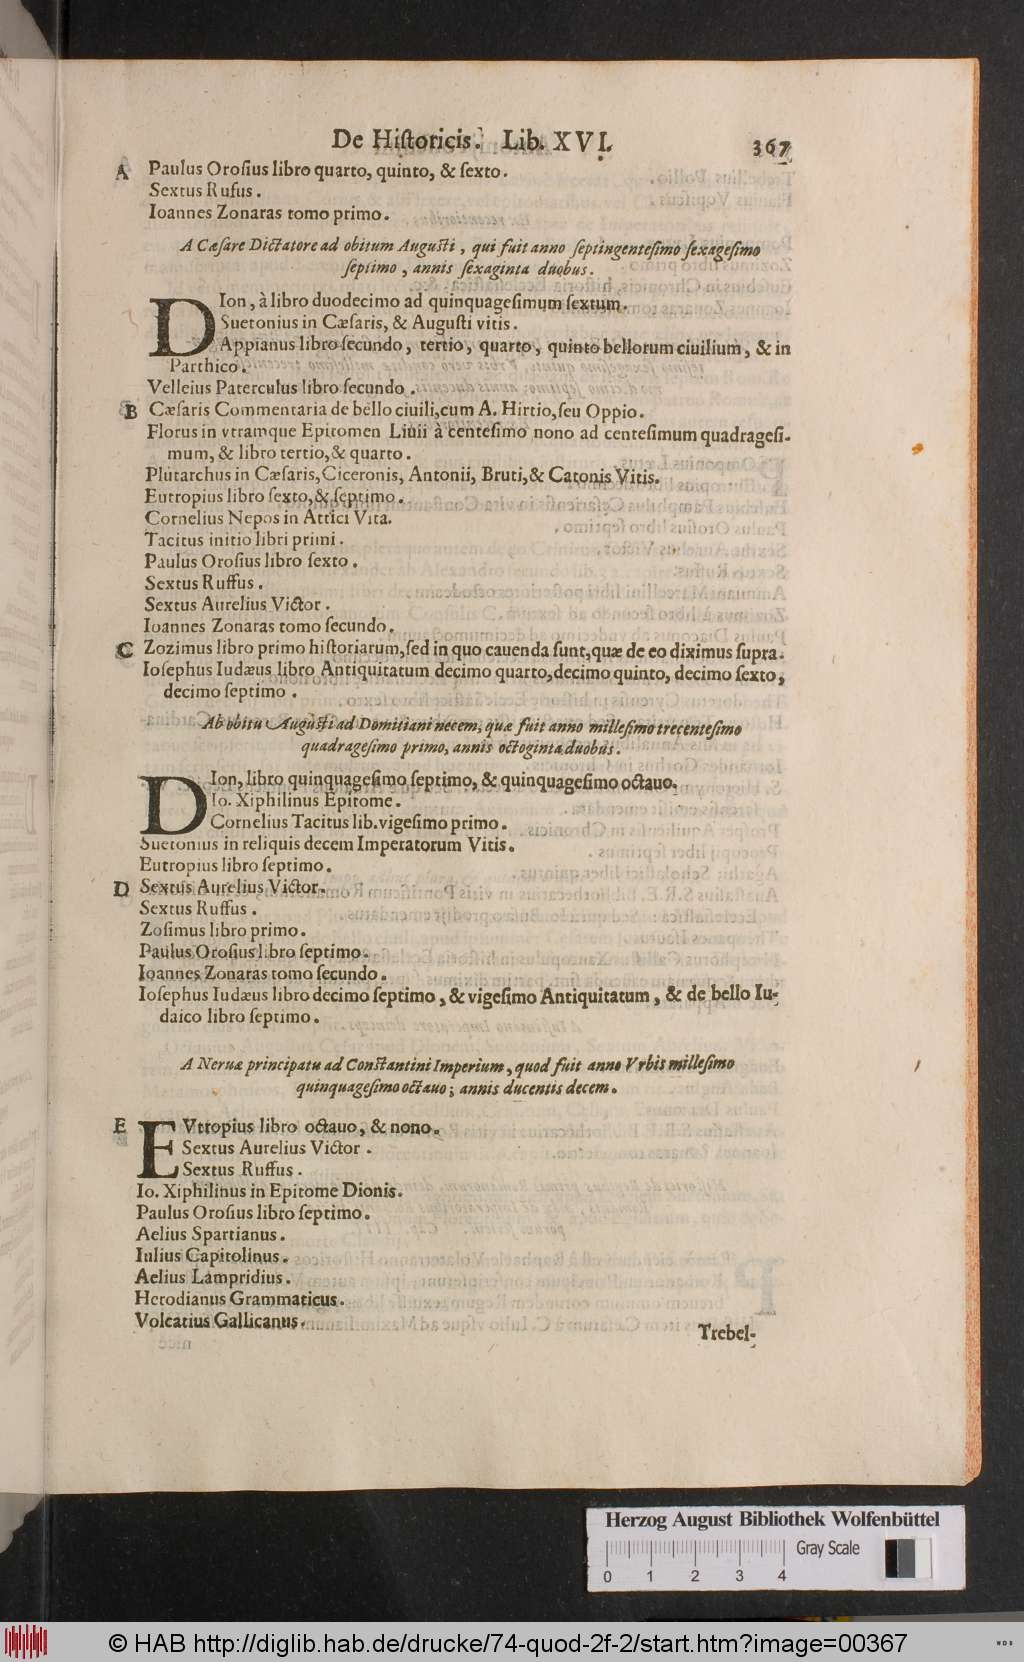 De Hiſtoricis. Lib. XVI. 367
A Paulus Oroſius libro quarto, quinto, & ſexto.
Sextus Rufus.
Ioannes Zonaras tomo primo.
A Cæſare Dictatore ad obitum Auguſti, qui fuit anno ſeptingenteſimo ſexageſimo
ſeptimo, annis ſexaginta duobus.
DIon, à libro duodecimo ad quinquageſimum ſextum.
Suetonius in Cæſaris, & Auguſti vitis.
Appianus libro ſecundo, tertio, quarto, quinto bellorum ciuilium, & in
Parthico.
Velleius Paterculus libro ſecundo.
B Cæſaris Commentaria de bello ciuili, cum A. Hirtio, ſeu Oppio.
Florus in vtramque Epitomen Liuii à centeſimo nono ad centeſimum quadrageſi-
mum, & libro tertio, & quarto.
Plutarchus in Cæſaris, Ciceronis, Antonii, Bruti, & Catonis Vitis.
Eutropius libro ſexto, & ſeptimo.
Cornelius Nepos in Attici Vita.
Tacitus initio libri primi.
Paulus Oroſius libro ſexto.
Sextus Ruffus.
Sextus Aurelius Victor.
Ioannes Zonaras tomo ſecundo.
C Zozimus libro primo hiſtoriarum, ſed in quo cauenda ſunt, quæ de eo diximus ſupra.
Ioſephus Iudæus libro Antiquitatum decimo quarto, decimo quinto, decimo ſexto,
decimo ſeptimo.
Ab obitu Auguſti ad Domitiani necem, quæ fuit anno milleſimo trecenteſimo
quadrageſimo primo, annis octoginta duobus.
DIon, libro quinquageſimo ſeptimo, & quinquageſimo octauo.
Io. Xiphilinus Epitome.
Cornelius Tacitus lib. vigeſimo primo.
Suetonius in reliquis decem Imperatorum Vitis.
Eutropius libro ſeptimo.
D Sextus Aurelius Victor.
Sextus Ruffus.
Zoſimus libro primo.
Paulus Oroſius libro ſeptimo.
Ioannes Zonaras tomo ſecundo.
Ioſephus Iudæus libro decimo ſeptimo, & vigeſimo Antiquitatum, & de bello Iu-
daico libro ſeptimo.
A Neruæ principatu ad Conſtantini Imperium, quod fuit anno Vrbis milleſimo
quinquageſimo octauo; annis ducentis decem.
E EVtropius libro octauo, & nono.
Sextus Aurelius Victor.
Sextus Ruffus.
Io. Xiphilinus in Epitome Dionis.
Paulus Oroſius libro ſeptimo.
Aelius Spartianus.
Iulius Capitolinus.
Aelius Lampridius.
Herodianus Grammaticus.
Volcatius Gallicanus.
Trebel-
Herzog August Bibliothek Wolfenbüttel
Gray Scale
0 1 2 3 4
© HAB http://diglib.hab.de/drucke/74-quod-2f-2/start.htm?image=00367